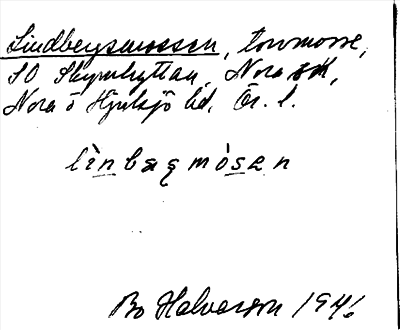 Lindbergsmossen, torvmosse,
SO Skyrshyttan, Nora sk,
Nora o Hjulsjö hd, Ör. l.
lìnbagmósen
Bo Halvarson 1946